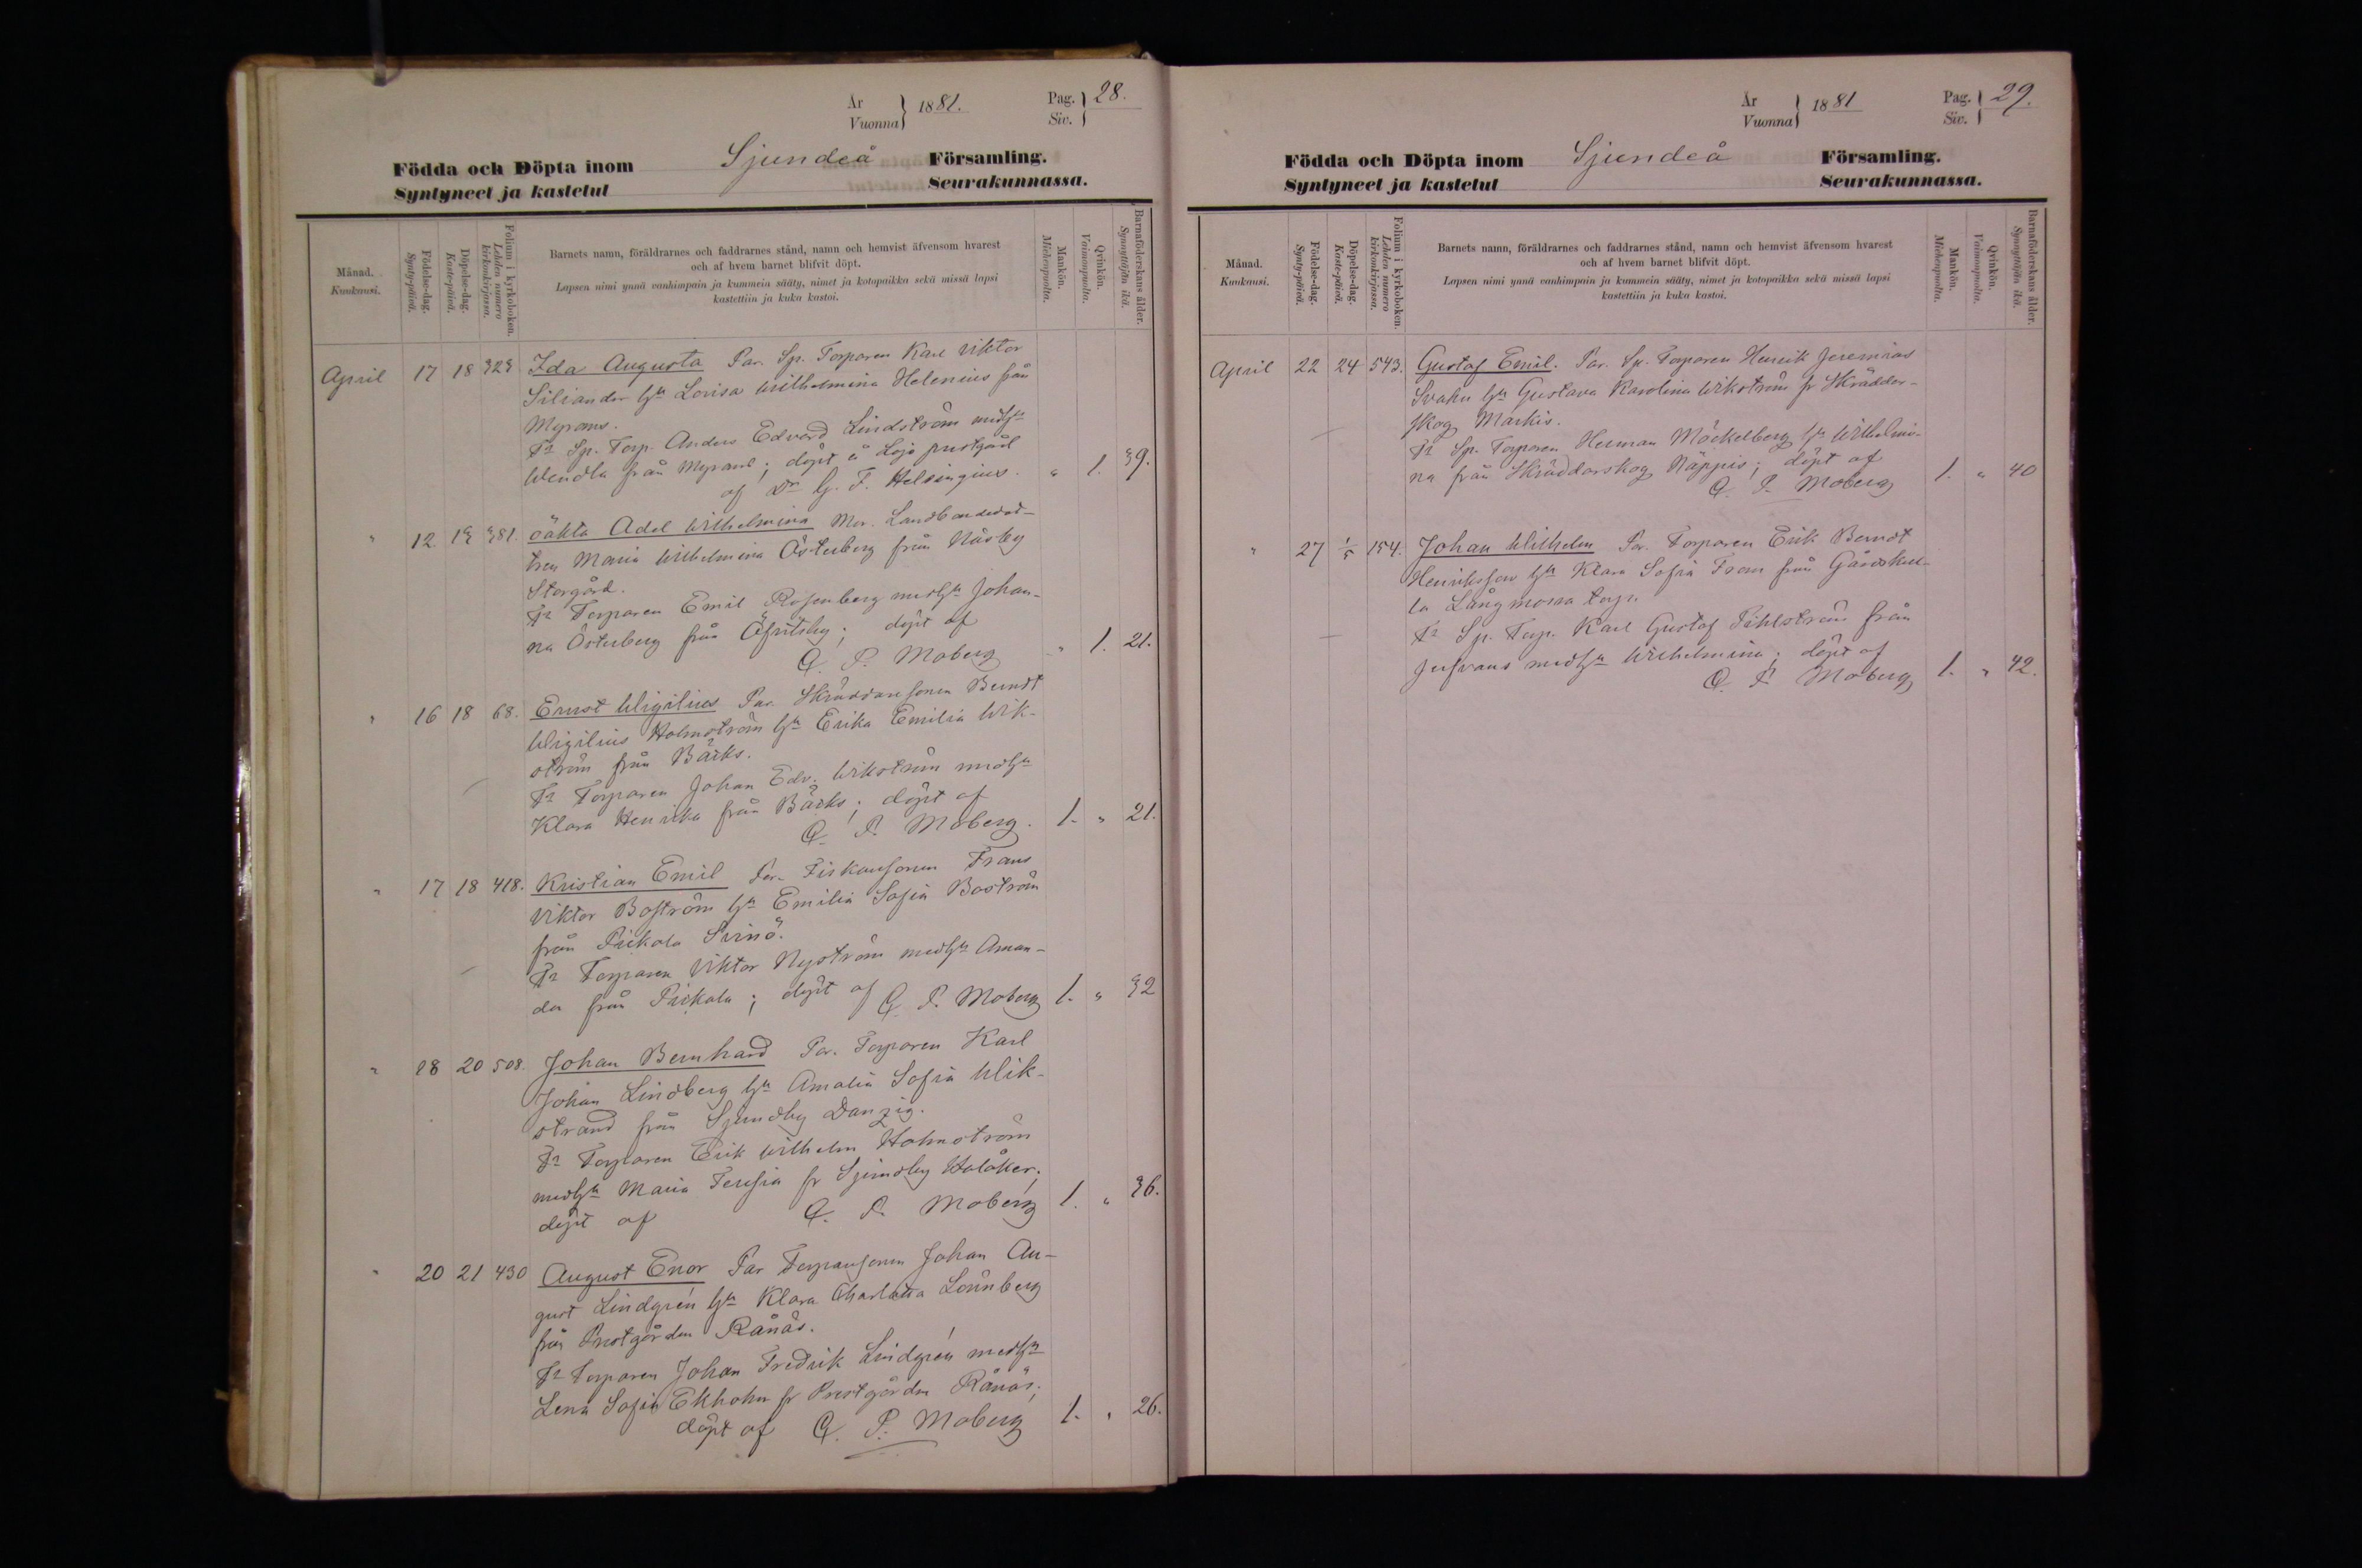 År
Vuonna
1881.
Pag.
Siv.
28.
Födda och Döpta inom Sjundeå Församling.
Syntyneet ja kastetut Seurakunnassa.
Månad.
Kuukausi.
Födelse-dag.
Synty-päivä.
Döpelse-dag.
Kaste-päivä.
Folium i kyrkoboken.
Lehden numero
kirkonkirjassa.
Barnets namn, föräldrarnes och faddrarnes stånd, namn och hemvist äfvensom hvarest
och af hvem barnet blifvit döpt.
Lapsen nimi ynnä vanhimpain ja kummein sääty, nimet ja kotopaikka sekä missä lapsi
kastettiin ja kuka kastoi.
Mankön.
Miehenpuolta.
Qvinkön.
Vaimonpuolta.
Barnaföderskans ålder.
Synnyttäjän ikä.
April 17 18 323 Ida Augusta Par. Sp. Torparen Karl Viktor
Siliander hu Lovisa Wilhelmina Helenius från
Myrans.
Fr Sp. Torp. Anders Edvard Lindström med hu
Wendla från Myrans; döpt å Lojo prestgård
af Dr G. F. Helsingius. " 1. 39.
" 12. 19 381. oäkta Adel Wilhelmina Mor. Landbondedot-
tren Maria Wilhelmina Österberg från Näsby
Storgård.
Fr Torparen Emil Rosenberg med hu Johan-
na Österberg från Öfvitsby; döpt af
G. P. Moberg " 1. 21.
" 16 18 68. Ernst Wigilius Par. Skräddaresonen Berndt
Wigilius Holmström hu Erika Emilia Wik-
ström från Bäcks.
Fr Torparen Johan Edv. Wikström med hu
Klara Henrika från Bäcks; döpt af
G. P. Moberg. 1. " 21.
" 17 18 418. Kristian Emil Par. Fiskaresonen Frans
Viktor Boström hu Emilia Sofia Boström
från Pickala Svinö.
Fr Torparen Viktor Nyström med hu Aman-
da från Pickala; döpt af G. P. Moberg 1. " 32
" 18 20 508. Johan Bernhard Par. Torparen Karl
Johan Lindberg hu Amalia Sofia Wik-
strand från Sjundby Danzig.
Fr Torparen Erik Wilhelm Holmström
med hu Maria Teresia fr Sjundby Holåker;
döpt af G. P. Moberg 1. " 36.
" 20 21 430 August Enor Par Torparesonen Johan Au-
gust Lindgrén hu Klara Charlotta Lönnberg
från Prestgården Rånäs.
Fr Torparen Johan Fredrik Lindgrén med hu
Lena Sofia Ekholm fr Prestgården Rånäs;
döpt af G. P. Moberg 1. " 26.
År
Vuonna
1881
Pag.
Siv.
29.
Födda och Döpta inom Sjundeå Församling.
Syntyneet ja kastetut Seurakunnassa.
Månad.
Kuukausi.
Födelse-dag.
Synty-päivä.
Döpelse-dag.
Kaste-päivä.
Folium i kyrkoboken.
Lehden numero
kirkonkirjassa.
Barnets namn, föräldrarnes och faddrarnes stånd, namn och hemvist äfvensom hvarest
och af hvem barnet blifvit döpt.
Lapsen nimi ynnä vanhimpain ja kummein sääty, nimet ja kotopaikka sekä missä lapsi
kastettiin ja kuka kastoi.
Mankön.
Miehenpuolta.
Qvinkön.
Vaimonpuolta.
Barnaföderskans ålder.
Synnyttäjän ikä.
April 22 24 543. Gustaf Emil. Par. Sp. Torparen Henrik Jeremias
Svahn hu Gustava Karolina Wikström fr Skräddar-
skog Markis.
Fr Sp. Torparen Herman Mäckelberg hu Wilhelmi-
na från Skräddarskog Näppis; döpt af
G. P. Moberg 1. " 40
" 27 1/5 154. Johan Wilhelm Par. Torparen Erik Berndt
Henriksson hu Klara Sofia From från Gårdskul-
la Långmossa torp.
Fr Sp. Torp. Karl Gustaf Pihlström från
Jusvans med hu Wilhelmina; döpt af
G. P. Moberg 1. " 42.